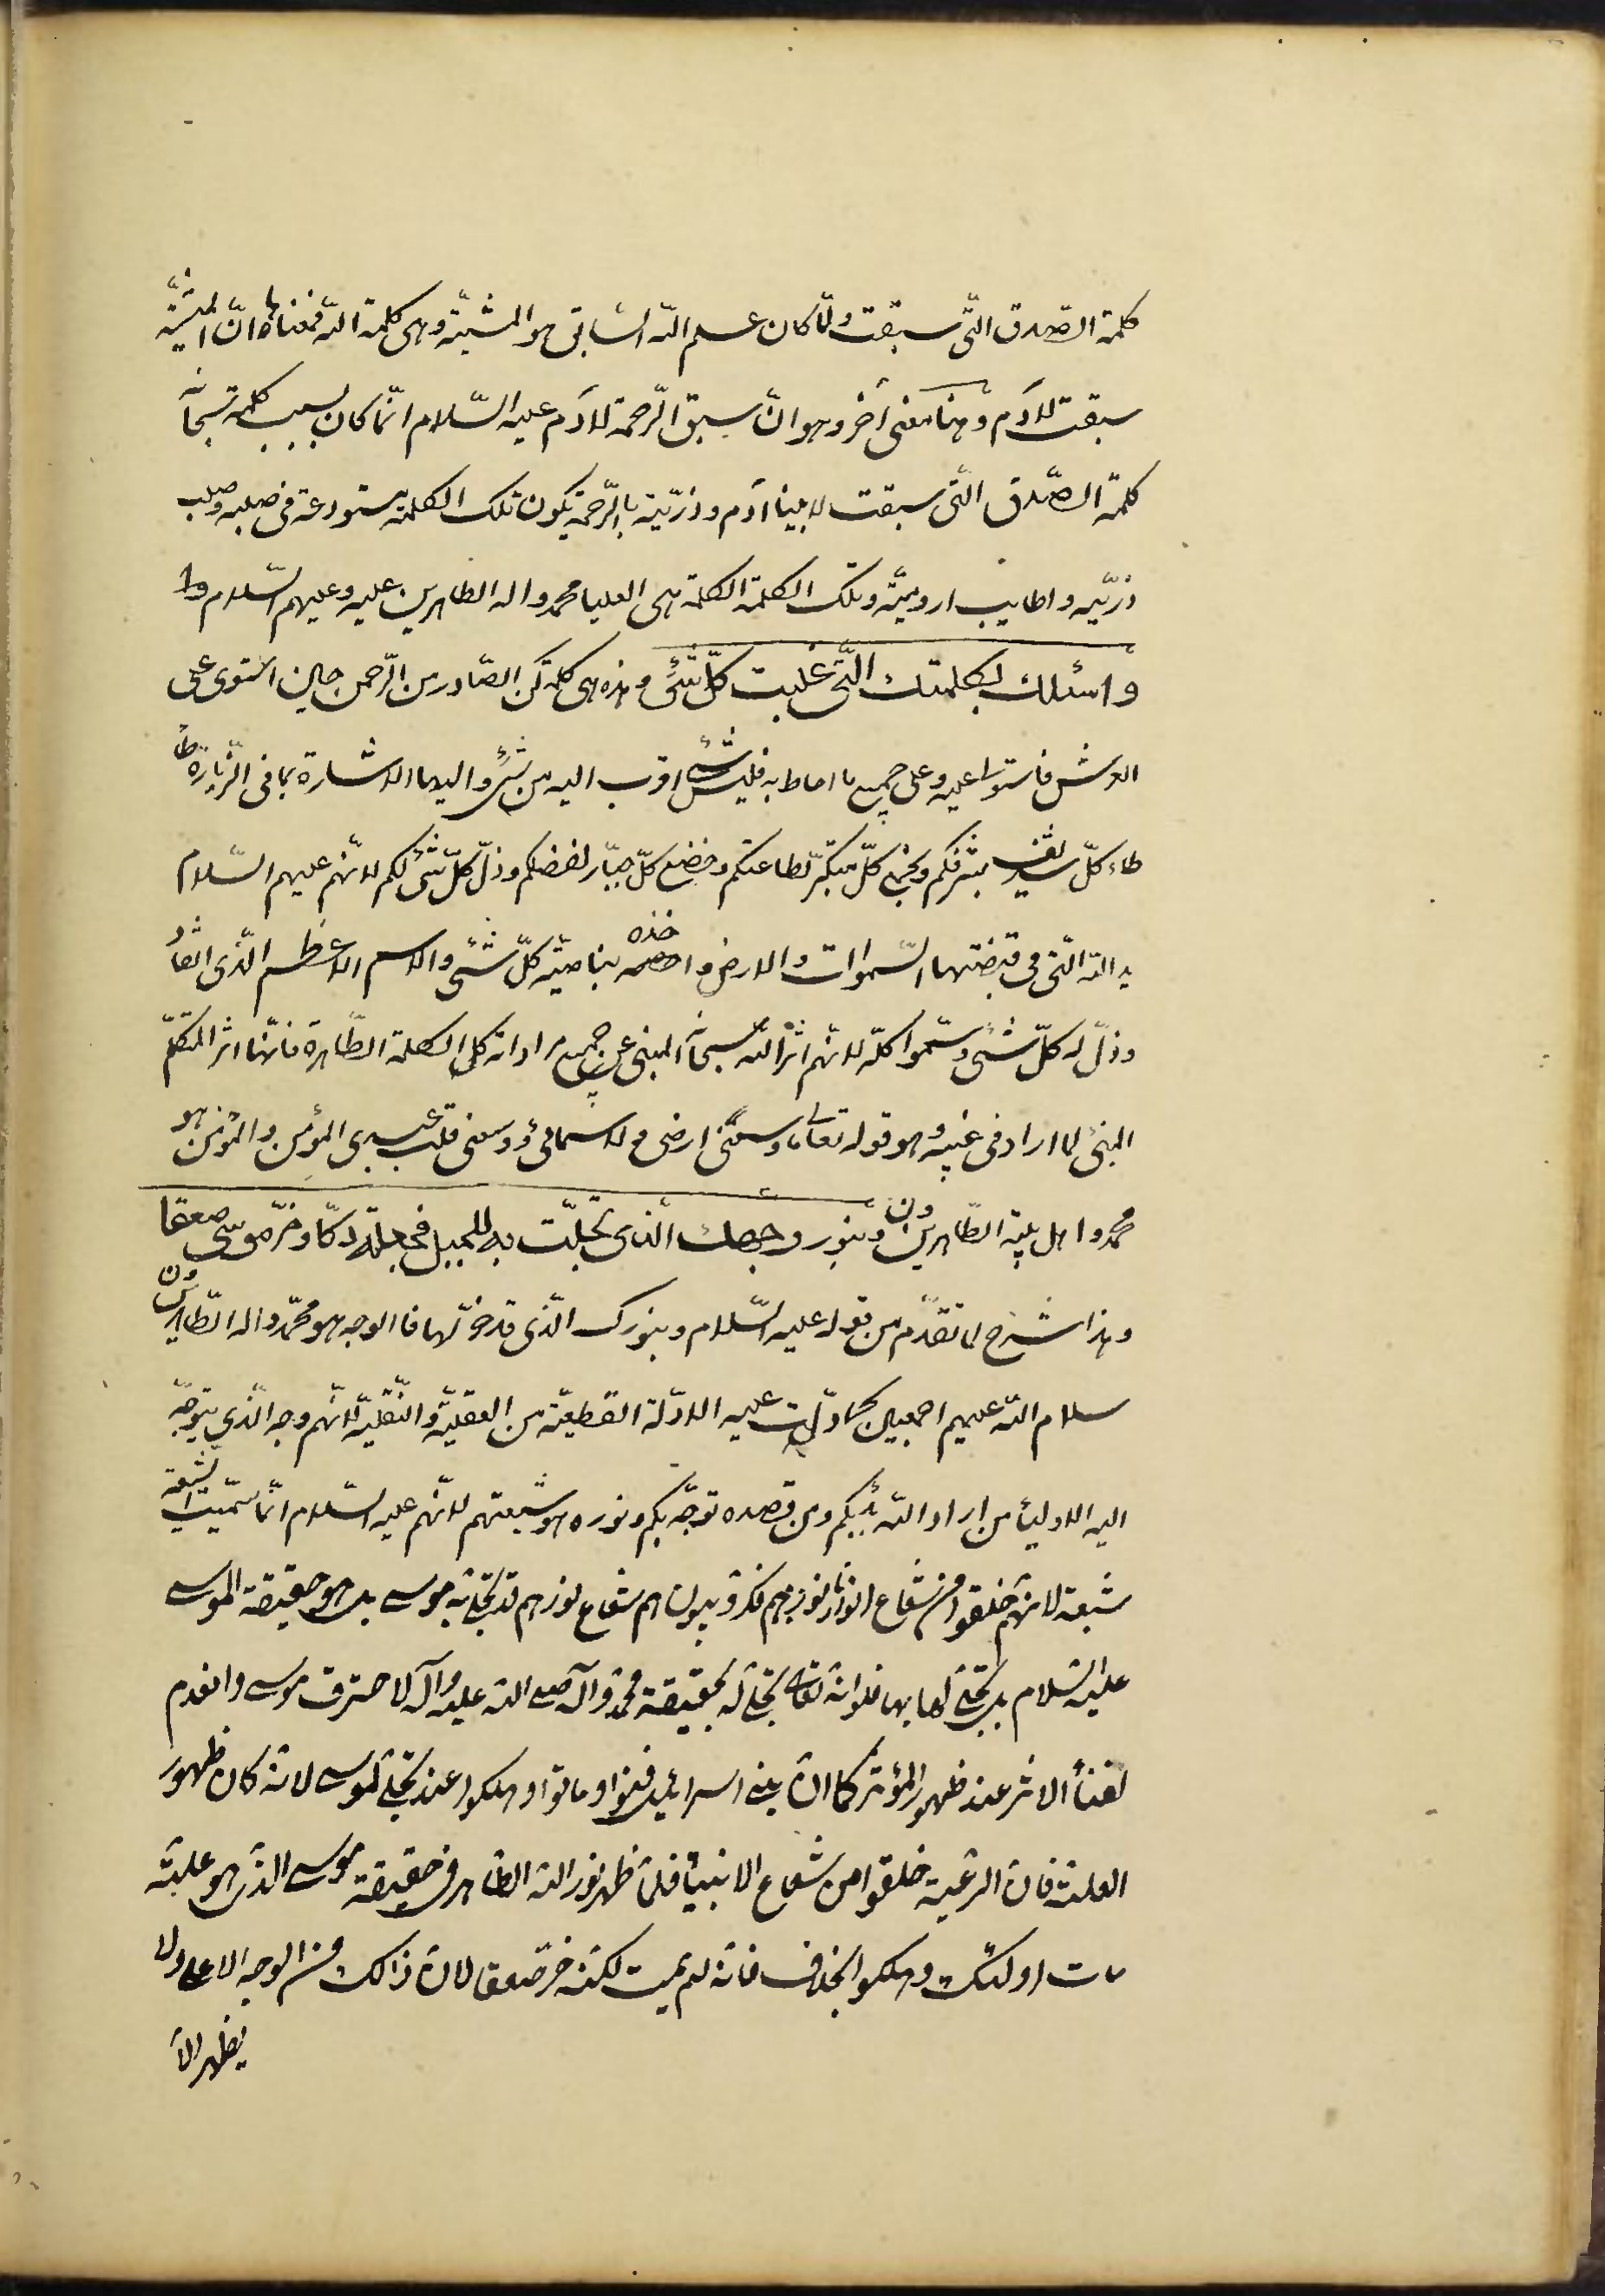 كلمة الصّدق التّى سبقت ولمّا كان علم اللّه السّابق هو المشيّة وهى كلمة اللّه فمعناها انّ المشيّة
سبقت لآدم وهنا معنى آخر وهو انّ سبق الرّحمة لآدم عليه السّلام انّما كان بسبب كلمته سبحانه
كلمة الصّدق التّى سبقت لابينا آدم وذرّيّته بالرّحمة يكون تلك الكلمة مستودعة فى صلبه وصلب
ذرّيّته واطايب ارومته وتلك الكلمة الكلمة هى العليا محمد واله الطاهرين عليه وعليهم السّلام وا
واسئلك بكلمتك التّى غلبت كلّ شىء وهذه هى كلمة كن الصّادر من الرّحمن حين استوى على
العرش فاستوى عليه وعلى جميع ما احاط به فليس شىء اقرب اليه من شىء واليها الاشارة بما فى الزّيارة طأ
طاء كلّ شريف لشرفكم وبخع كلّ متكبّر لطاعتكم وخضع كلّ جبّار لفضلكم وذلّ كلّ شىء لكم لانّهم عليهم السّلام
يد اللّه التّى فى قبضتها السّموات والارض واخذه بناصية كلّ شىء والاسم الاعظم الّذى انقاد
وذلّ له كلّ شىء وسمّوا كلمة لانّهم اثر اللّه سبحانه المنبئ عن جميع مراداته كالكلمة الظّاهرة فانّها اثر المتكلّم
المنبئ لما اراد فى غيبه وهو قوله تعالى ما وسعنى ارضى ولا سمائى ووسعنى قلب عبدى المؤمن والمؤمن هو
محمد واهل بيته الطّاهرين ون وبنور وجهك الّذى تجلّيت به للجبل فجعلته دكّا وخرّ موسى صعقا
وهذا شرح لما تقدّم من قوله عليه السّلام وبنورك الّذى قد خرّ لها فالوجه هو محمّد واله الطّاهرين ون
سلام اللّه عليهم اجمعين كما دلّت عليه الادلّة القطعيّة من العقليّة والنّقليّة لانّهم وجه الّذى يتوجّه
اليه الاولياء من اراد اللّه بدء بكم ومن قصده توجّه بكم ونوره هو شيعتهم لانّهم عليه السّلام انّما سمّيت الشّيعة
شيعة لانّهم خلقوا من شعاع انوارنا الكروبيون هم شعاع نورهم قد تجلى به موسى بل هو حقيقة الموسى
عليه السّلام بل تجلّى لها بها فلو انّه تعالى تجلّى له بحقيقة محمّد وآله صلى اللّه عليه وآله لاحترق موسى وانعدم
لفناء الاثر عند ظهور المؤثّر كما انّ بنى اسرائيل فنوا وماتوا وهلكوا عند تجلّى لموسى لانّه كان ظهور
العلّة فانّ الرّعيّة خلقوا من شعاع الانبياء فلمّا ظهر نور اللّه الظّاهر فى حقيقة موسى الذى هو علّيّته
مات اولئك وهلكوا بخلاف فانّه لم يمت لكنّه خرّ صعق لانّ ذالك من الوجه الاعلى ولا
يظهر الّا